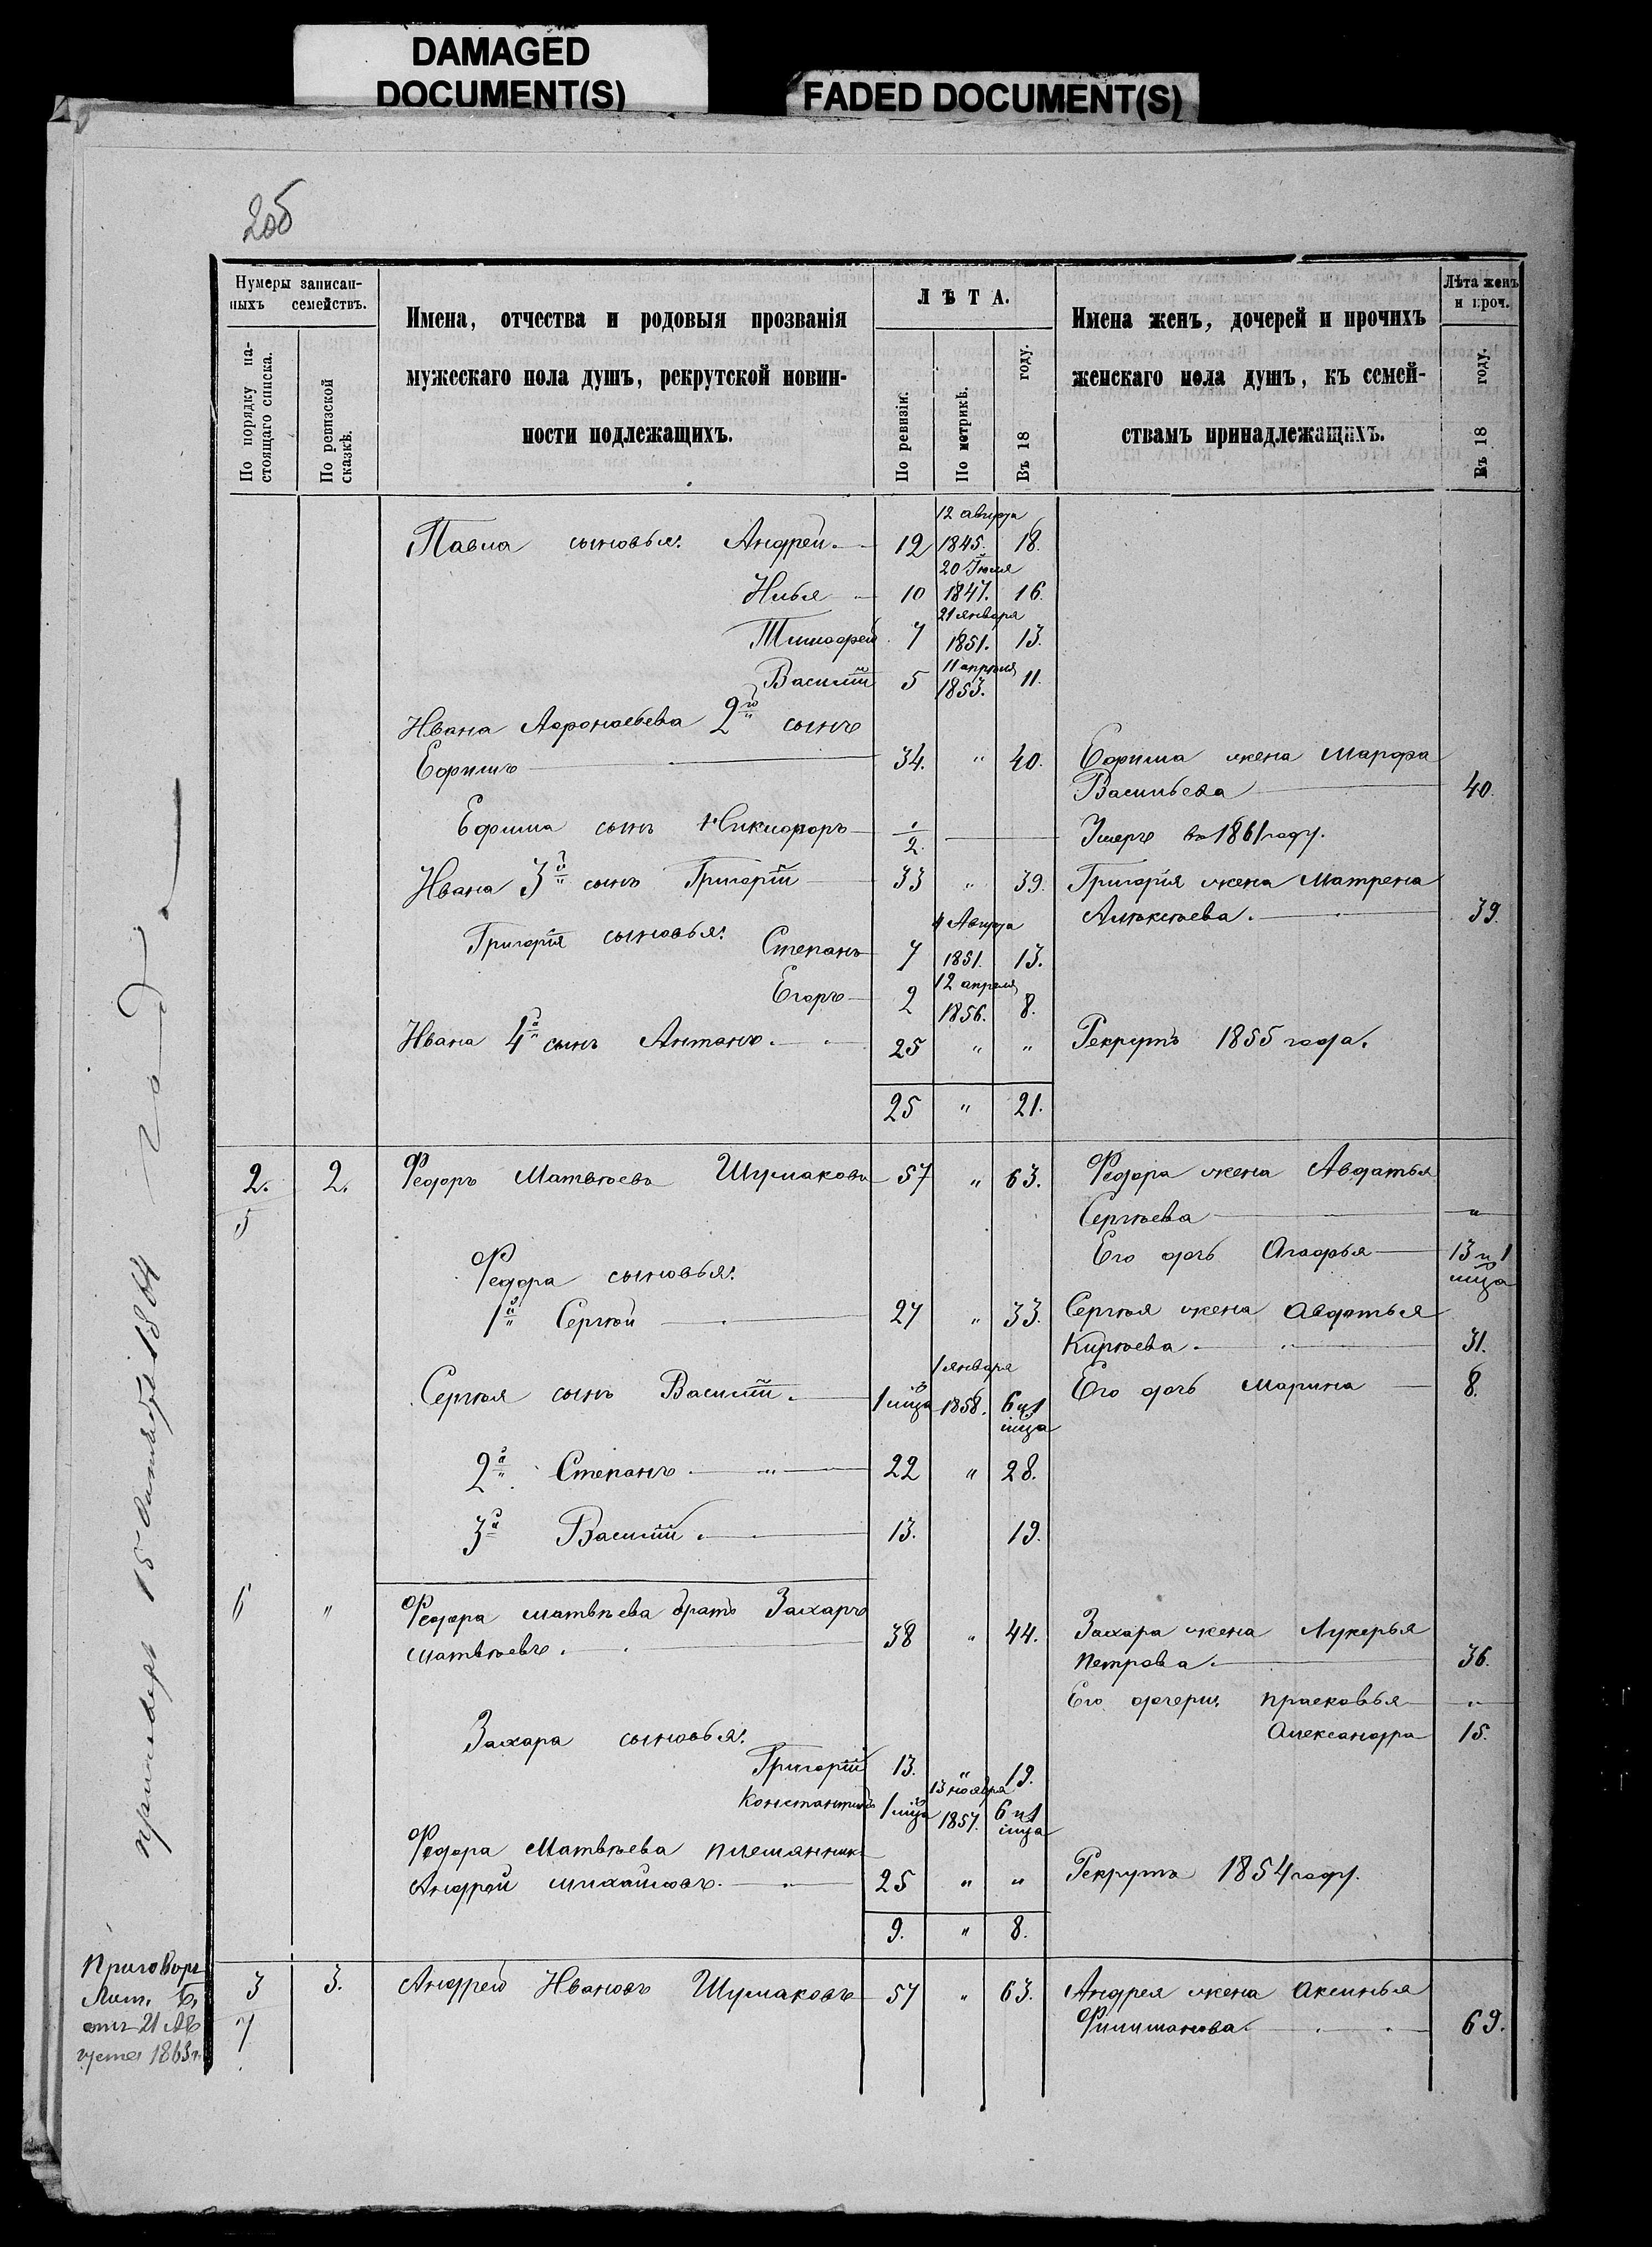 DAMAGED
DOCUMENT(S)
FADED DOCUMENT(S)
206
Нумеры записан-
ныхъ семействъ.
По порядку на-
стоящаго списка.
По ревизской
сказкѣ.
Имена, отчества и родовыя прозванія
мужескаго пола душъ, рекрутской повин-
ности подлежащихъ.
ЛѢТА.
По ревизіи.
По метрикѣ.
Въ 18 году.
Имена женъ, дочерей и прочихъ
женскаго пола душъ, къ семей-
ствамъ принадлежащихъ.
Лѣта женъ
и проч.
Въ 18 году.
12 августа
Павла сыновья: Андрей 12 1845. 18.
20 Іюля
Илья 10 1847. 16.
21 января
Тимофей 7 1851. 13.
11 апрѣля
Василій 5 1853. 11.
Ивана Афонасьева 2й сынъ
Ефимъ 34. " 40. Ефима жена Марфа
Васильева 40.
Ефима сынъ Никифоръ 1/2. Умеръ въ 1861 году.
Ивана 3й сынъ Григорій 33 " 39. Григорія жена Матрена
Алексѣева. 39.
4 Августа
Григорія сыновья: Степанъ 7 1851. 13.
12 апрѣля
Егоръ 2 1856. 8.
Ивана 4й сынъ Антонъ. 25 " " Рекрутъ 1855 года.
25 " 21.
2. 2. Федоръ Матвѣевъ Шумаковъ 57 " 63. Федора жена Авдотья
5 Сергѣева "
Его дочь Агафья 13 и 1
мца
Федора сыновья:
1й Сергѣй 27 " 33. Сергѣя жена Авдотья
Кирѣева. 31.
1 января
Сергѣя сынъ Василій. 1 мца 1858. 6 и 1 Его дочь Марина 8.
мца
2й Степанъ 22 " 28.
3й Василій. 13. 19.
6 " Федора Матвѣева братъ Захаръ
Матвѣевъ. 38 " 44. Захара жена Лукерья
Петрова. 36.
Его дочери: Прасковья "
Александра 15.
Захара сыновья:
Григорій 13. " 19.
13 ноября
Константинъ 1 мца 1857. 6 и 1
мца
Федора Матвѣева племянникъ
Андрей Михайловъ. 25 " " Рекрутъ 1854 году.
9. " 8.
3 3. Андрей Ивановъ Шумаковъ 57 " 63. Андрея жена Аксинья
7 Филимонова. 69.
приговоръ 15 1864 года
Приговоръ
Лит. Б.
отъ 21 Ав
густа 1863 г.